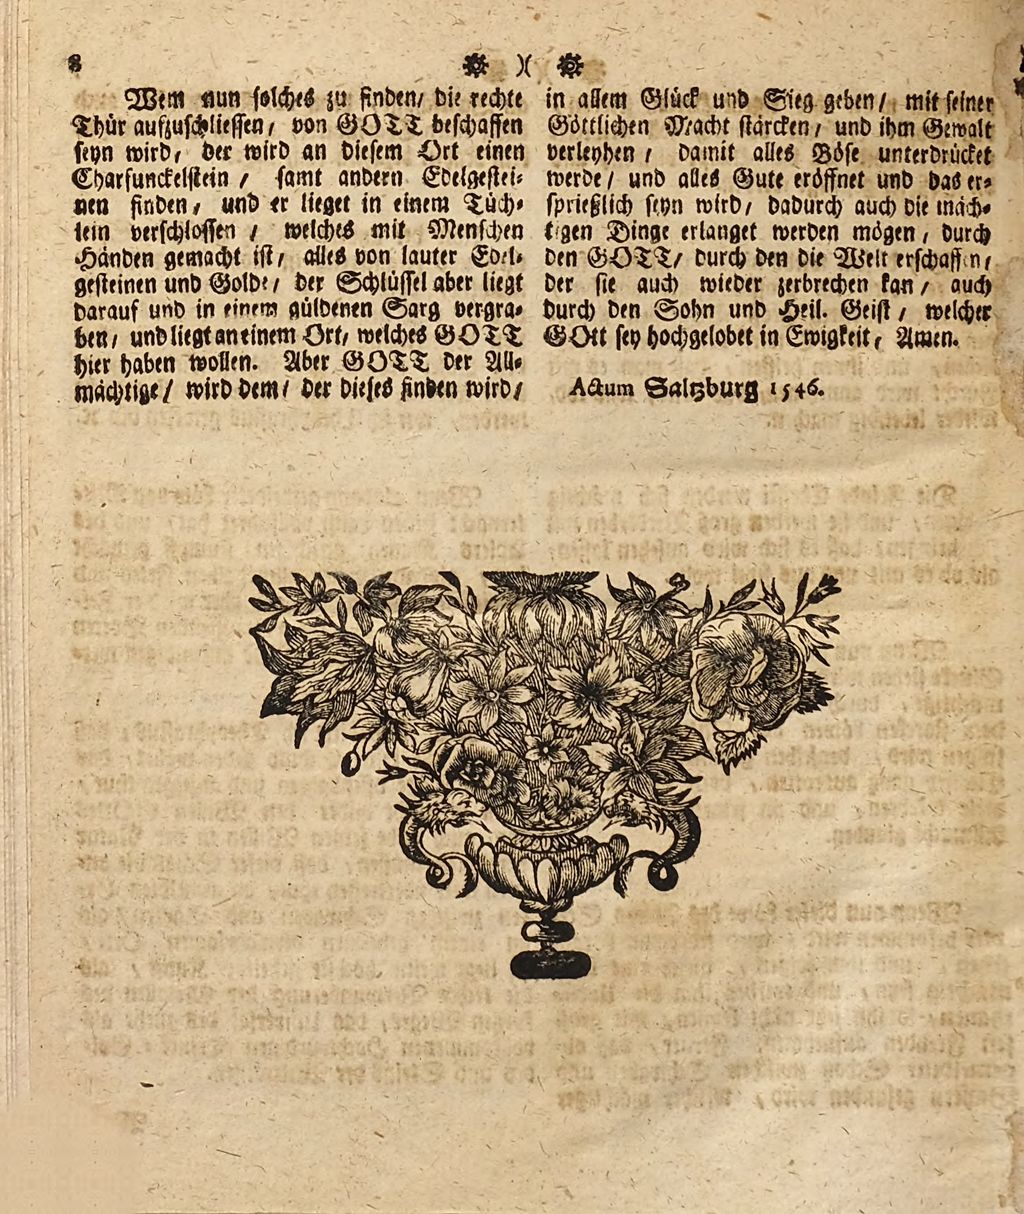 8
Wem nun solches zu finden/ die rechte
Thür aufzuschliessen/ von GOTT beschaffen
seyn wird/ der wird an diesem Ort einen
Charfunckelstein/ samt andern Edelgestei-
nen finden/ und er lieget in einem Tüch-
lein verschlossen/ welches mit Menschen
Händen gemacht ist/ alles von lauter Edel-
gesteinen und Golde/ der Schlüssel aber liegt
darauf und in einem güldenen Sarg vergra-
ben/ und liegt an einem Ort/ welches GOTT
hier haben wollen. Aber GOTT der All-
mächtige/ wird dem/ der dieses finden wird/
in allem Glück und Sieg geben/ mit seiner
Göttlichen Macht stärcken/ und ihm Gewalt
verleyhen/ damit alles Böse unterdrücket
werde/ und alles Gute eröffnet und das er-
sprießlich seyn wird/ dadurch auch die mäch-
tigen Dinge erlanget werden mögen/ durch
den GOTT/ durch den die Welt erschaffen/
der sie auch wieder zerbrechen kan/ auch
durch den Sohn und Heil. Geist/ welcher
GOtt sey hochgelobet in Ewigkeit/ Amen.
Actum Saltzburg 1546.